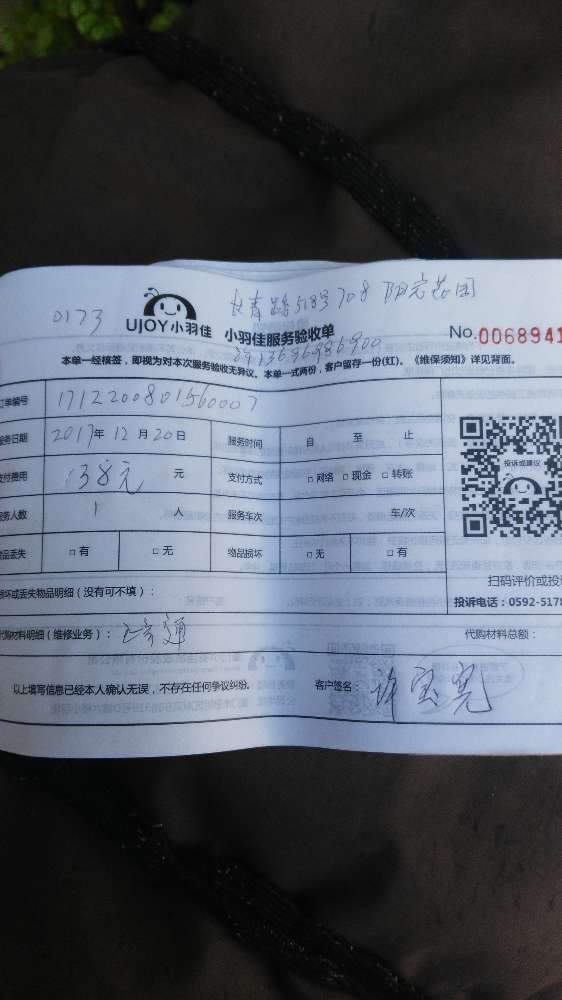 长青路518号708 阳光花园
0173
UJOY小羽佳 小羽佳服务验收单
No.0068941
本单一经核签，即视为对本次服务验收无异议。本单一式两份，客户留存一份(红)。《维保须知》详见背面。
订单编号 1712200801560007
服务日期 2017年12月20日 服务时间 自 至 止
支付费用 138元 元 支付方式 □网络 □现金 □转账
服务人数 1 人 服务车次 车/次
物品丢失 □有 □无 物品损坏 □无 □有
投诉或建议
扫码评价或投
损坏或丢失物品明细（没有可不填）：
投诉电话：0592-5178
代购材料明细（维修业务）： 代购材料总额：
以上填写信息已经本人确认无误，不存在任何争议纠纷。 客户签名： 许宝亮